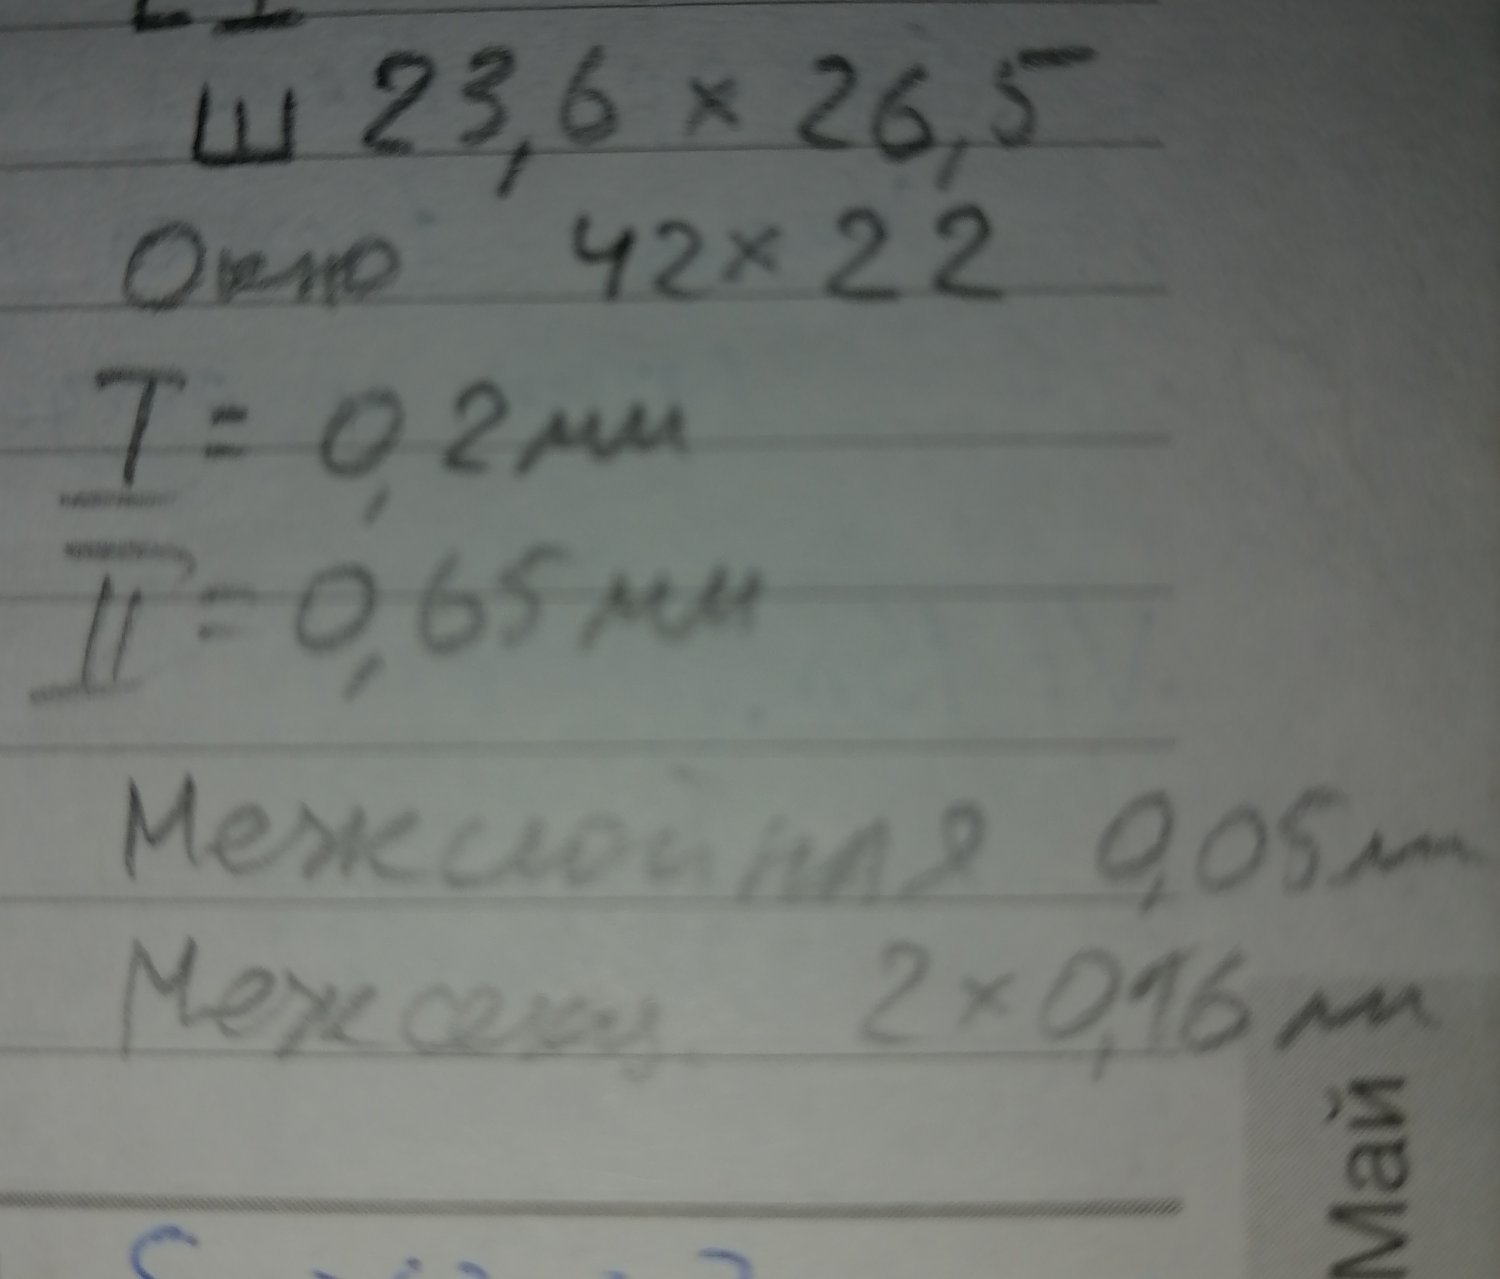 Ш 23,6 × 26,5
Окно 42 × 22
I = 0,2 мм
II = 0,65 мм
Межслойная 0,05 мм
Межсекц. 2 × 0,16 мм
Май